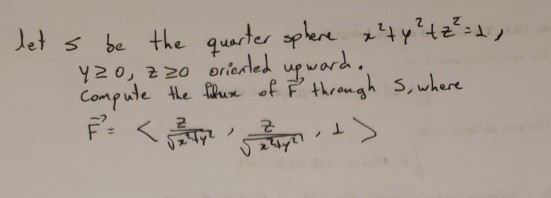 let s be the quarter sphere x²+y²+z²=1,
y≥0, z≥0 oriented upward.
Compute the flux of F⃗ through S, where
F⃗ = < z/√(x²+y²), z/√(x²+y²), 1 >